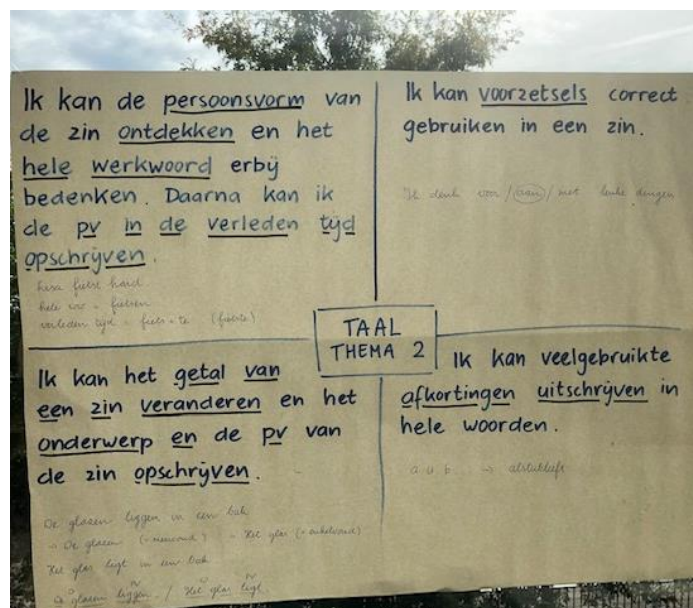 Ik kan de persoonsvorm van
de zin ontdekken en het
hele werkwoord erbij
bedenken. Daarna kan ik
de pv in de verleden tijd
opschrijven.
fietst hard
hele ww = fietsen
verleden tijd = fiets + te (fietste)
Ik kan voorzetsels correct
gebruiken in een zin.
Ik denk voor / aan / met leuke dingen
TAAL
THEMA 2
Ik kan het getal van
een zin veranderen en het
onderwerp en de pv van
de zin opschrijven.
De glazen liggen in een bak
→ De glazen (= meervoud) → Het glas (= enkelvoud)
Het glas ligt in een bak
De glazen liggen / Het glas ligt.
Ik kan veelgebruikte
afkortingen uitschrijven in
hele woorden.
a.u.b. → alstublieft